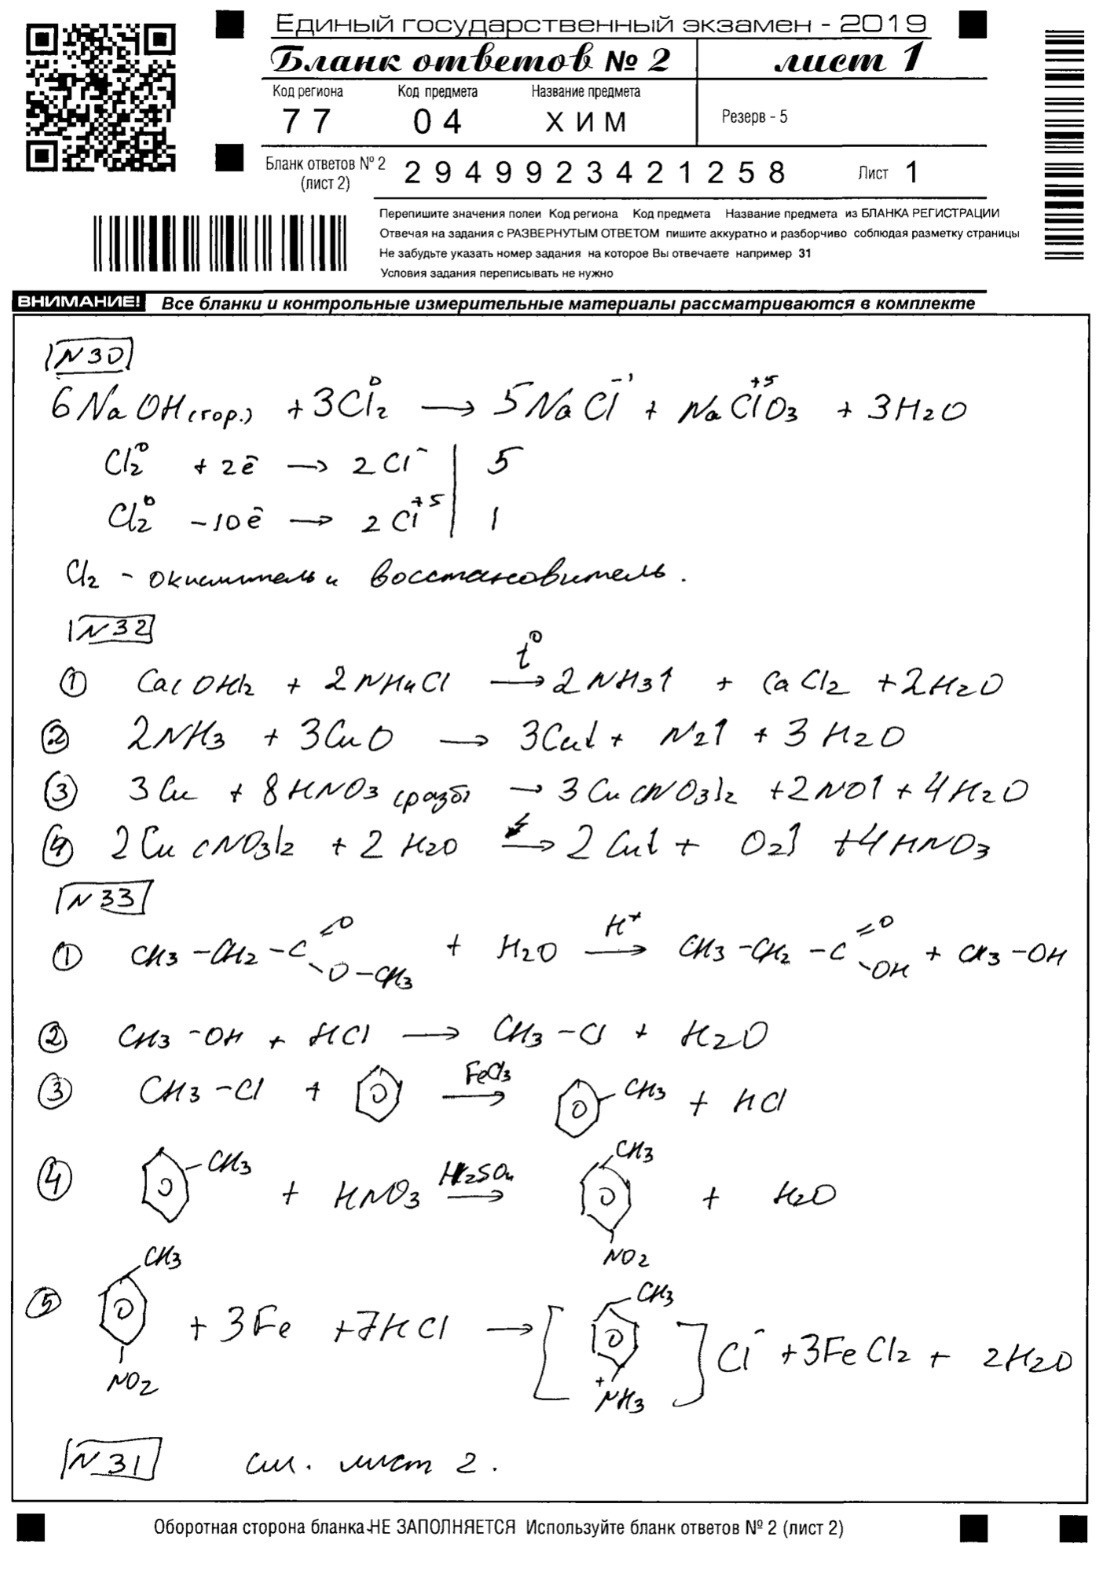 Единый государственный экзамен - 2019
Бланк ответов № 2 лист 1
Код региона Код предмета Название предмета
77 04 ХИМ Резерв - 5
Бланк ответов № 2 (лист 2) 2949923421258 Лист 1
Перепишите значения полей Код региона Код предмета Название предмета из БЛАНКА РЕГИСТРАЦИИ
Отвечая на задания с РАЗВЕРНУТЫМ ОТВЕТОМ пишите аккуратно и разборчиво соблюдая разметку страницы
Не забудьте указать номер задания на которое Вы отвечаете например 31
Условия задания переписывать не нужно
ВНИМАНИЕ! Все бланки и контрольные измерительные материалы рассматриваются в комплекте
N30
6NaOH(гор.) + 3Cl₂⁰ → 5NaCl⁻¹ + NaCl⁺⁵O₃ + 3H₂O
Cl₂⁰ + 2ē → 2Cl⁻ | 5
Cl₂⁰ - 10ē → 2Cl⁺⁵ | 1
Cl₂ - окислитель и восстановитель.
N32
① Ca(OH)₂ + 2NH₄Cl t⁰→ 2NH₃↑ + CaCl₂ + 2H₂O
② 2NH₃ + 3CuO → 3Cu↓ + N₂↑ + 3H₂O
③ 3Cu + 8HNO₃(разб) → 3Cu(NO₃)₂ + 2NO↑ + 4H₂O
④ 2Cu(NO₃)₂ + 2H₂O → 2Cu↓ + O₂↑ + 4HNO₃
N33
① CH₃-CH₂-C=O-O-CH₃ + H₂O H⁺→ CH₃-CH₂-C=O-OH + CH₃-OH
② CH₃-OH + HCl → CH₃-Cl + H₂O
③ CH₃-Cl + FeCl₃→ -CH₃ + HCl
④ -CH₃ + HNO₃ H₂SO₄→ CH₃ NO₂ + H₂O
⑤ CH₃ NO₂ + 3Fe + 7HCl → [CH₃ ⁺NH₃]Cl⁻ + 3FeCl₂ + 2H₂O
N31 см. лист 2.
Оборотная сторона бланка НЕ ЗАПОЛНЯЕТСЯ Используйте бланк ответов № 2 (лист 2)